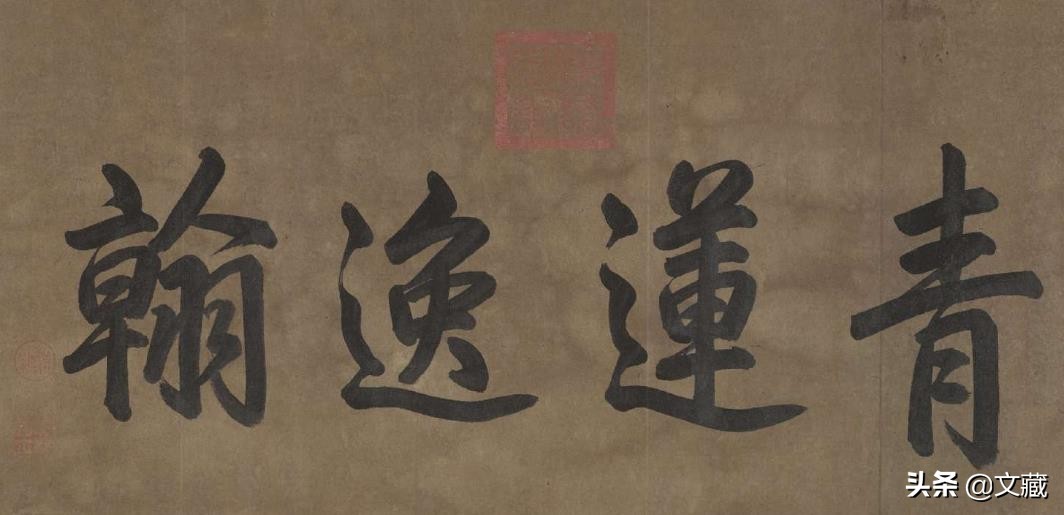 青蓮逸翰
头条 @文藏